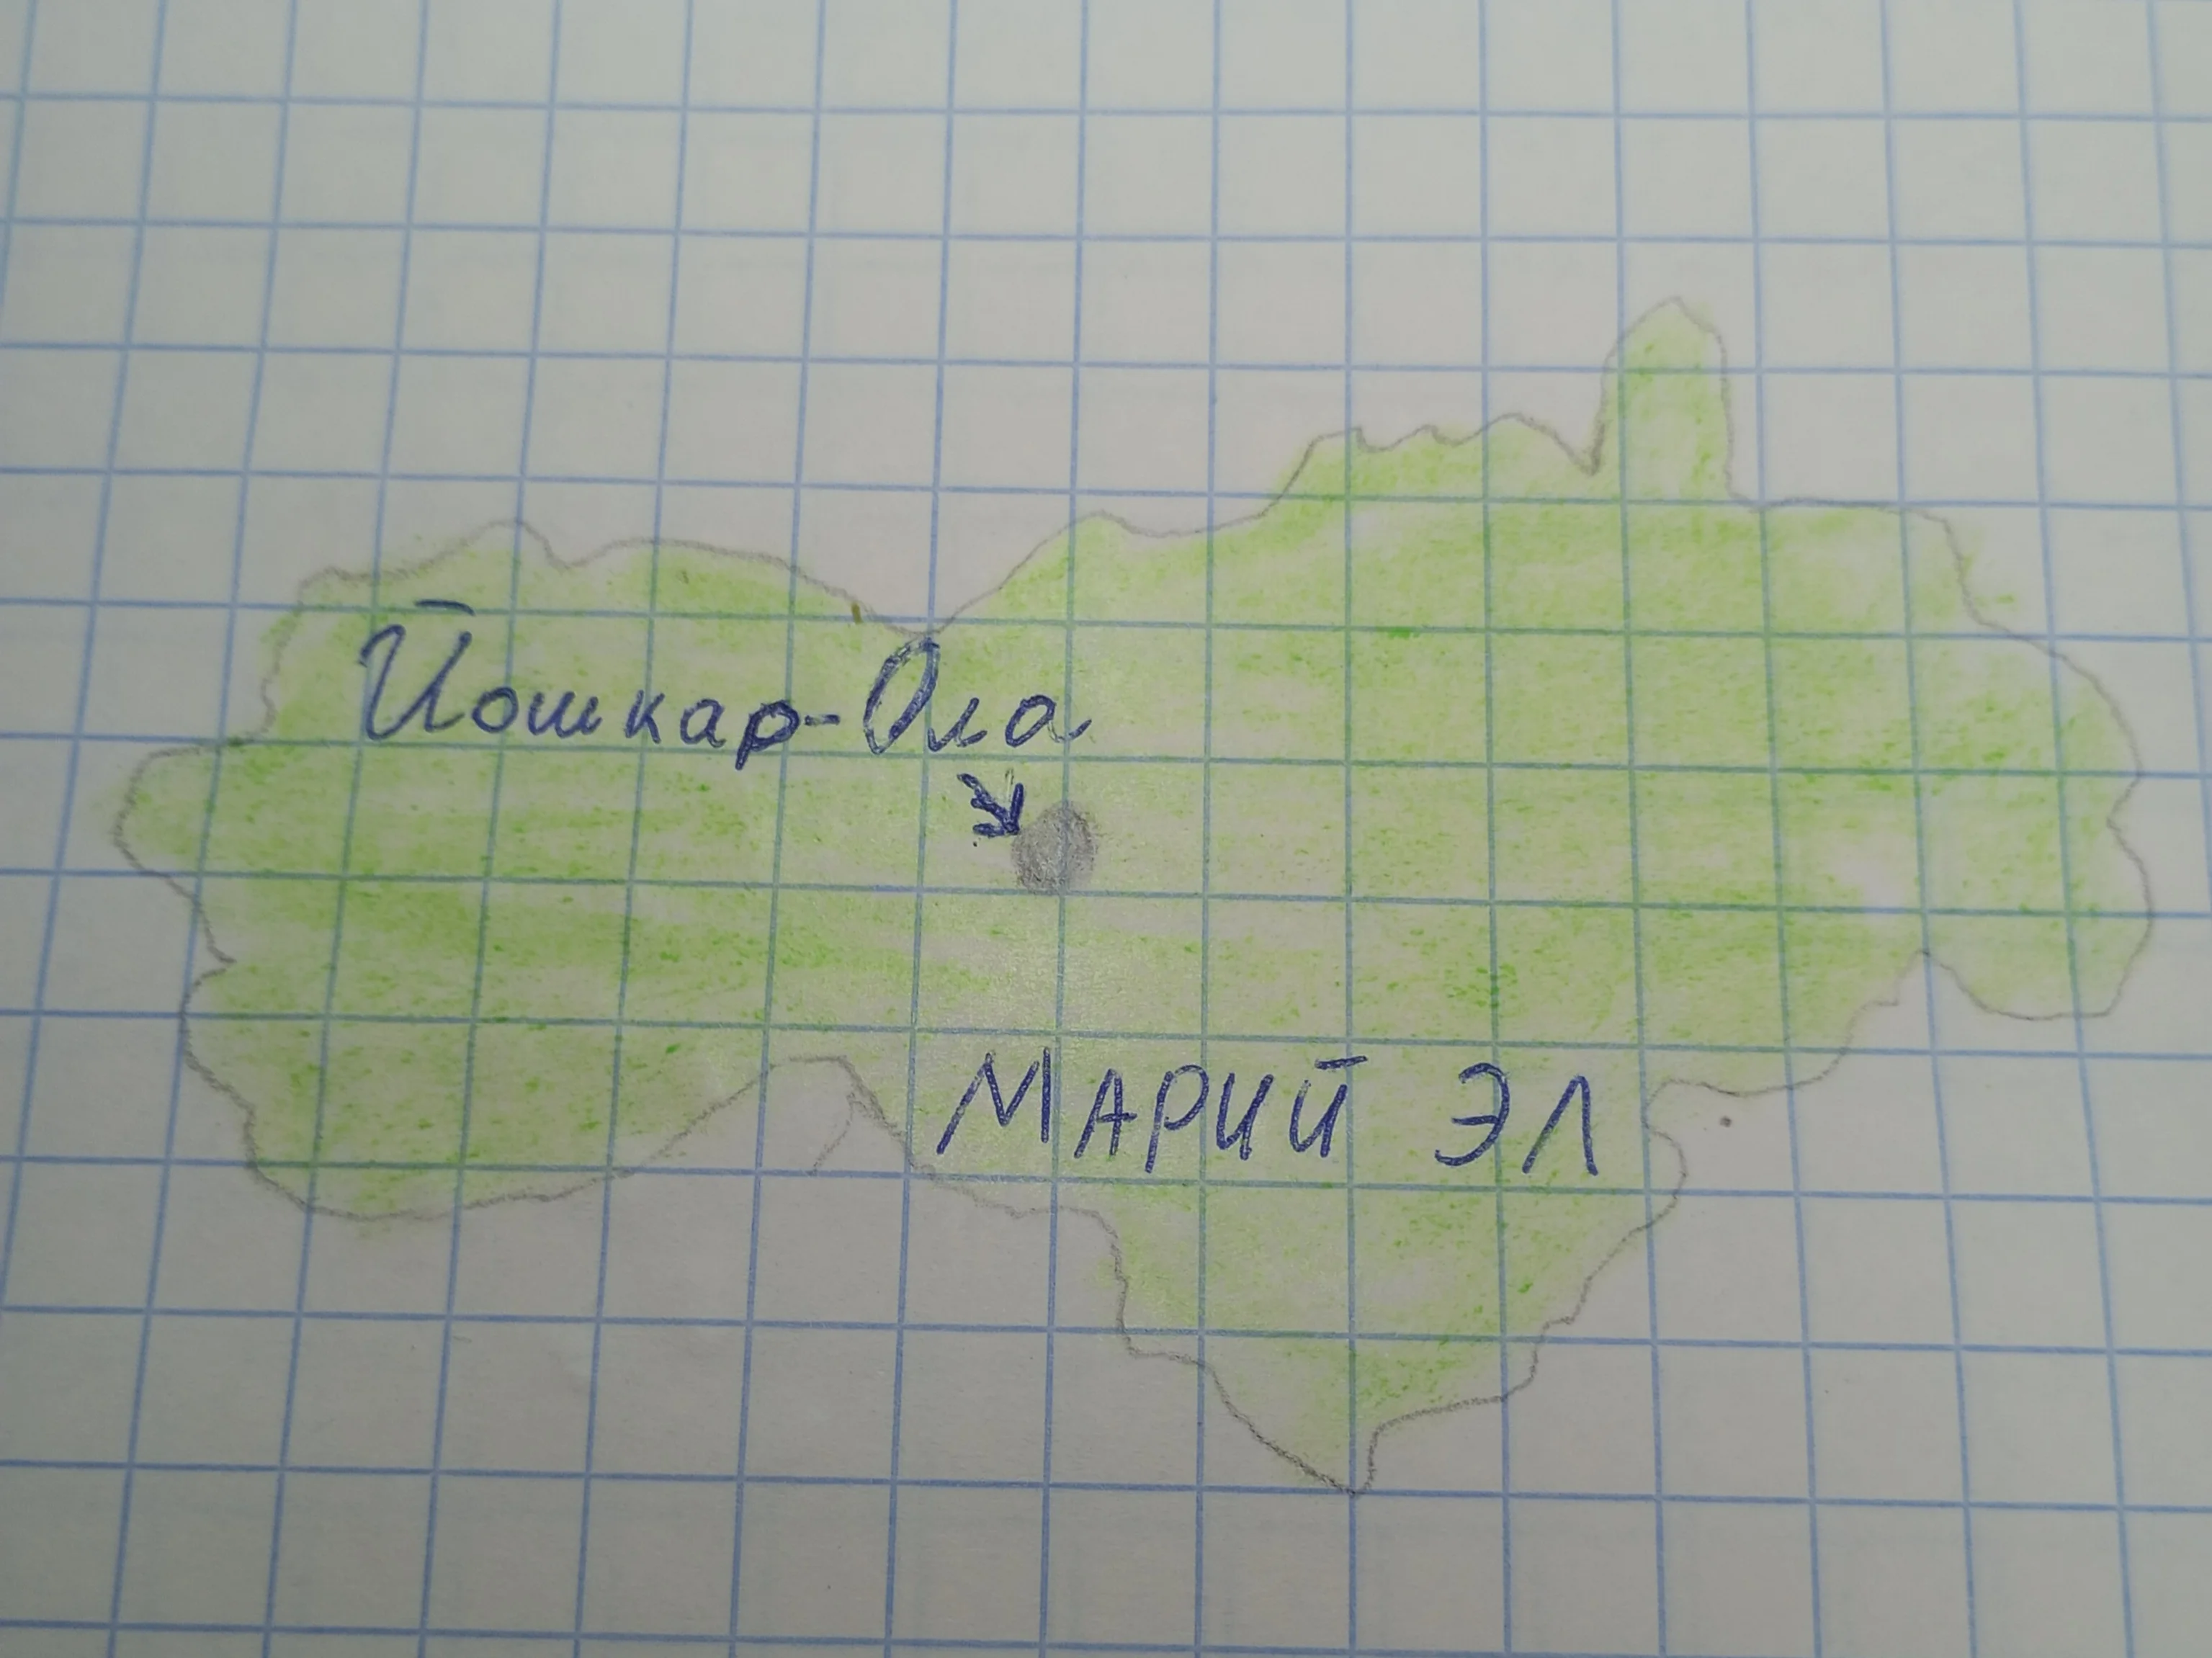 Йошкар-Ола
МАРИЙ ЭЛ